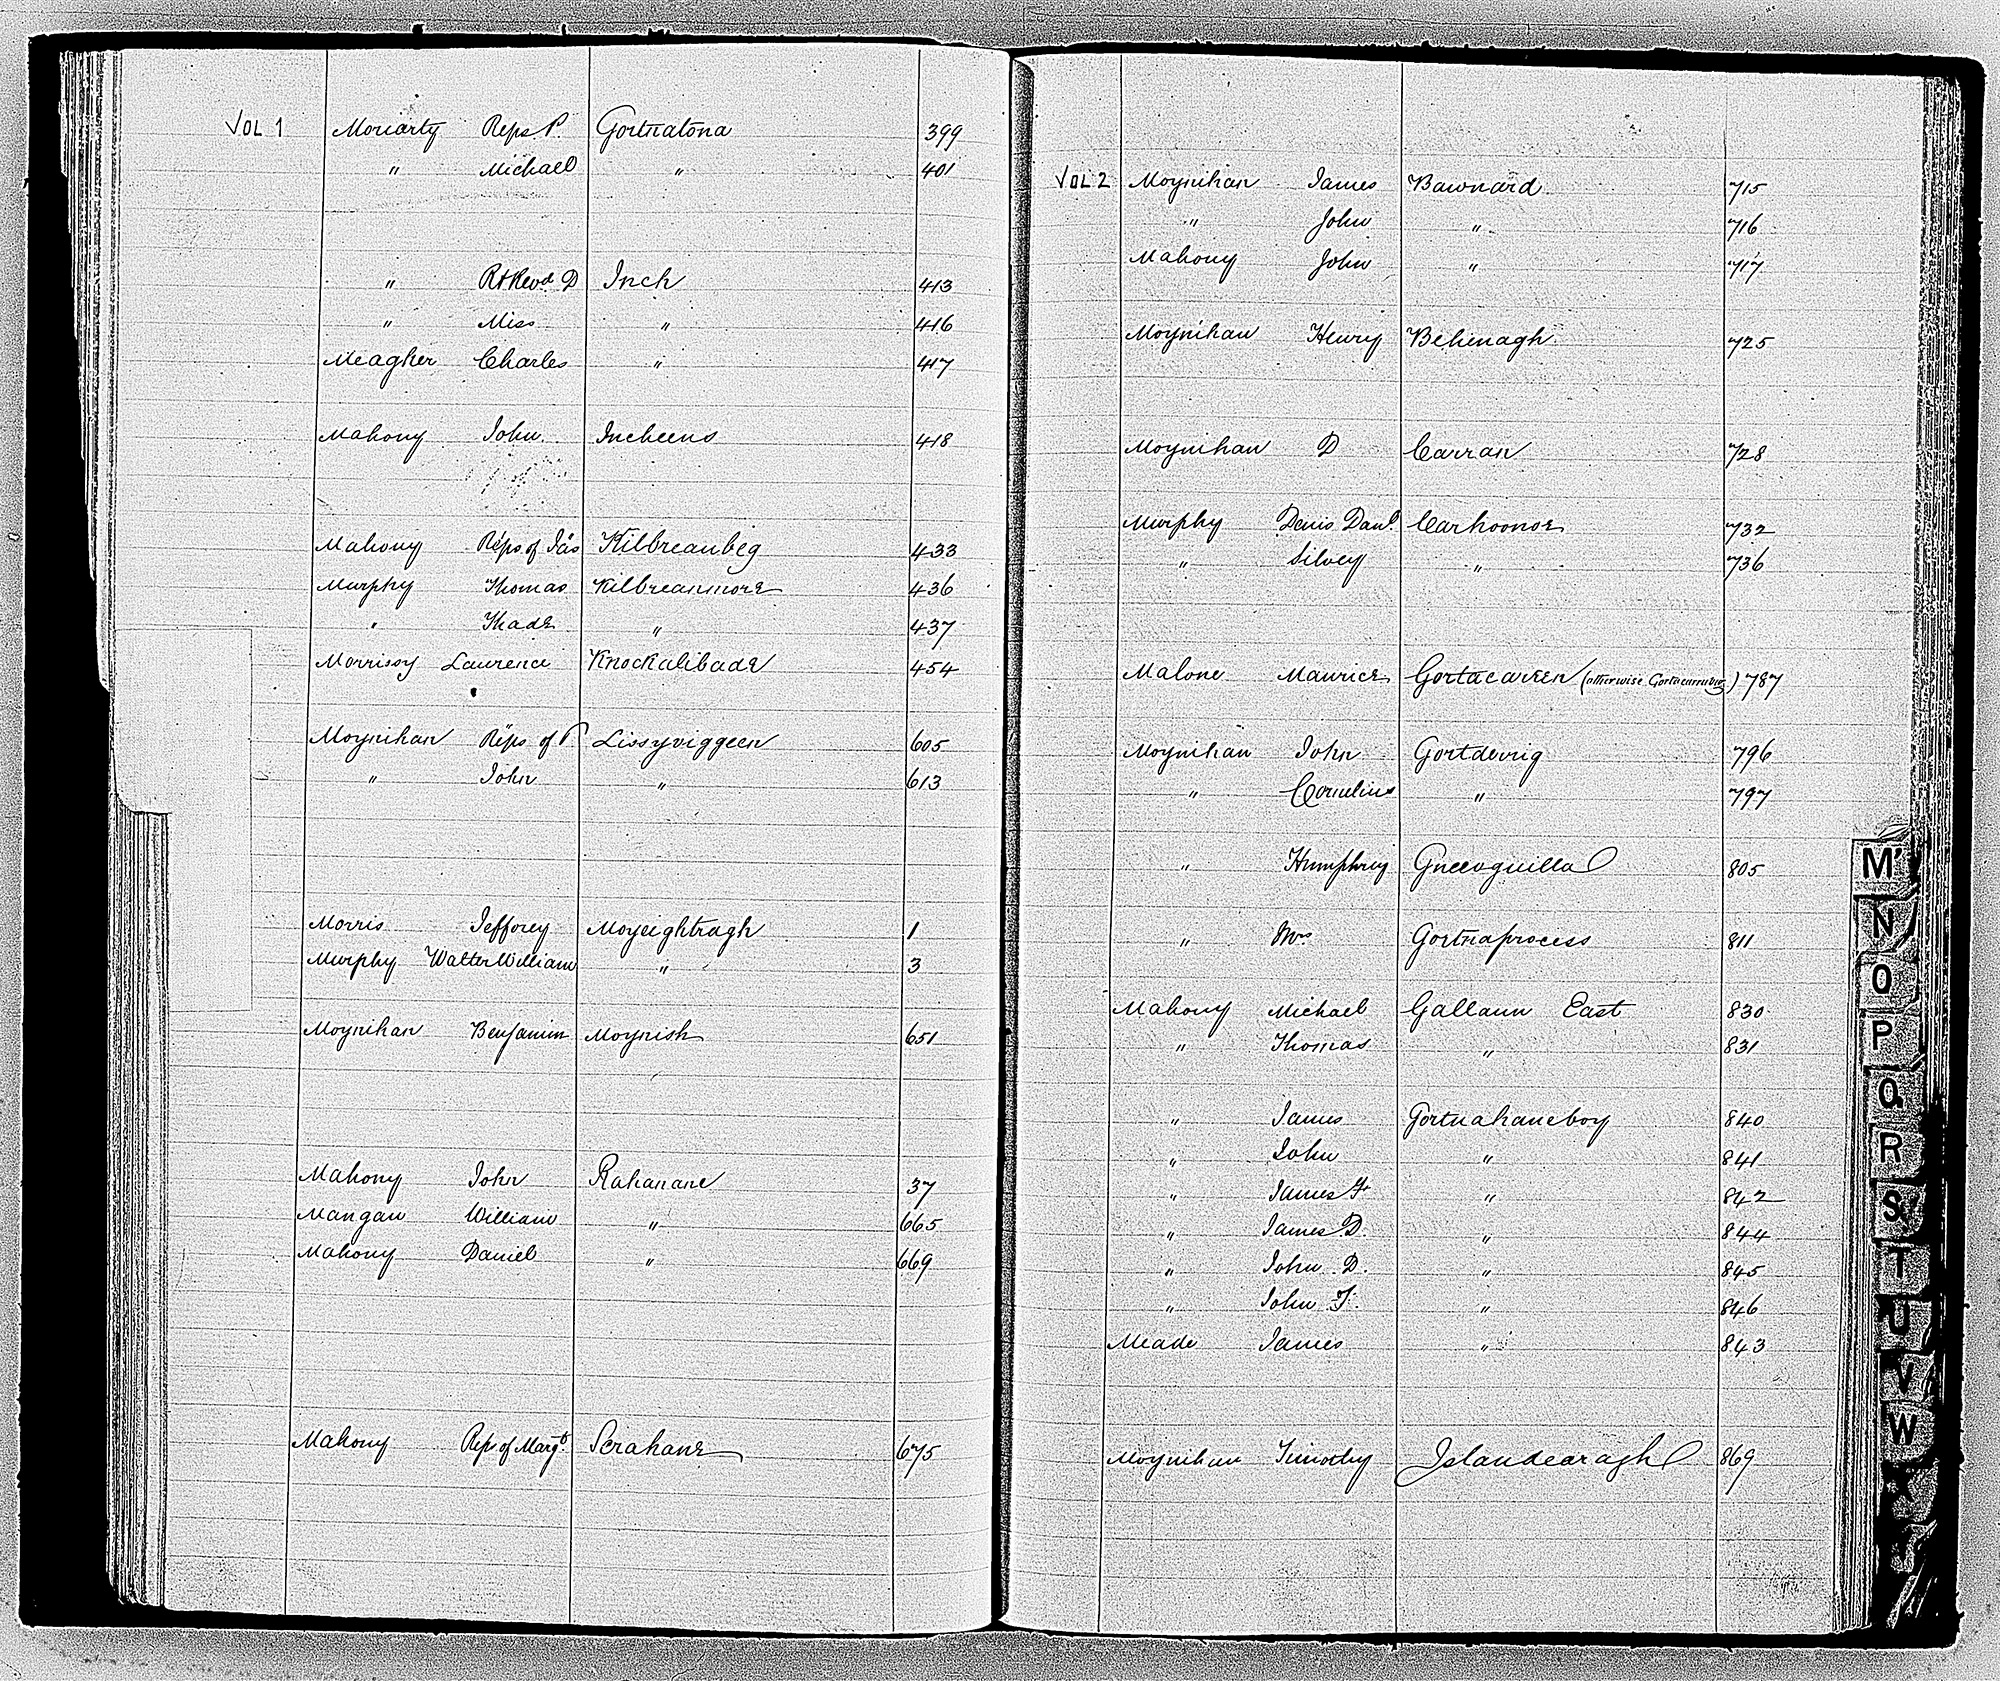 VOL 1 Moriarty Reps P. Gortnatona 399
" Michael " 401
" Rt Revd D Inch 413
" Miss " 416
Meagher Charles " 417
Mahony John Incheens 418
Mahony Reps of Jas Kilbreanbeg 433
Murphy Thomas Kilbreanmore 436
" Thade " 437
Morrissy Laurence Knockalibade 454
Moynihan Reps of P Lissyviggeen 605
" John " 613
Morris Jefforey Moyeightragh 1
Murphy Walter William " 3
Moynihan Benjamin Moynish 651
Mahony John Rahanane 37
Mangan William " 665
Mahony Daniel " 669
Mahony Reps of Margt. Scrahane 675
VOL 2 Moynihan James Bawnard 715
" John " 716
Mahony John " 717
Moynihan Henry Behenagh 725
Moynihan D Carran 728
Murphy Denis Danl. Carhoonoe 732
" Silvey " 736
Malone Maurice Gortacareen (otherwise Gortacarrubeg) 787
Moynihan John Gortderrig 796
" Cornelius " 797
" Humphrey Gneevguilla 805
" Mrs Gortnaprocess 811
Mahony Michael Gallaun East 830
" Thomas " 831
" James Gortnahaneboy 840
" John " 841
" James F " 842
" James D. " 844
" John D. " 845
" John T. " 846
Meade James " 843
Moynihan Timothy Islandearagh 869
M'
N
O
P
Q
R
S
T
U
V
W
X